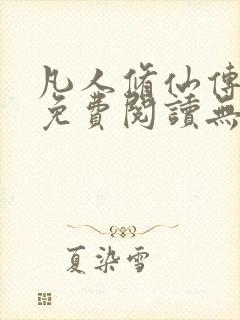 凡人脩仙傳
免費閱讀無
夏染雪